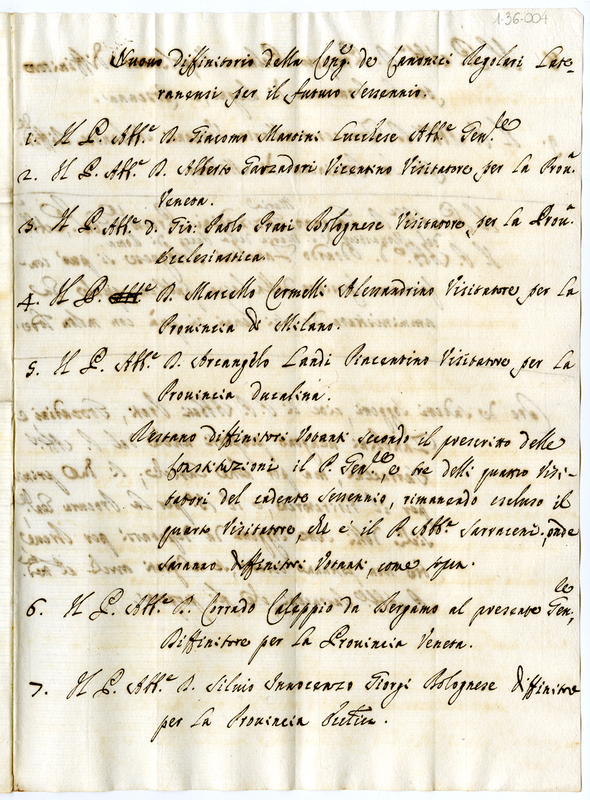 1-36-004
Nuovo Diffinitorio della Cong.e de Canonici Regolari Late-
ranensi per il futuro Sessennio.
1. Il P. Abb.e D. Giacomo Mansini Lucchese Abb.e Gen.le
2. Il P. Abb.e D. Alberto Garzadori Vicentino Visitatore per la Prou.a
Veneta.
3. Il P. Abb.e D. Gio: Paolo Grati Bolognese Visitatore per la Prou.a
Ecclesiastica.
4. Il P. D. Marcello Cermelli Alessandrino Visitatore per la
Provincia di Milano.
5. Il P. Abb.e D. Arcangelo Landi Piacentino Visitatore per la
Provincia Ducalina.
Restano Diffinitori Votanti secondo il prescritto delle
Constituzioni il P. Gen.le, e tre delli quattro Visi-
tatori del cadente Sessennio, rimanendo escluso il
quarto Visitatore, che è il P. Abb.e Sarraceni, onde
saranno Diffinitori Votanti, come
6. Il P. Abb.e D. Corrado Caleppio da Bergamo al presente Gen.le,
Diffinitore per la Provincia Veneta.
7. Il P. Abb.e D. Silvio Innocenzo Giorgi Bolognese Diffinitore
per la Provincia